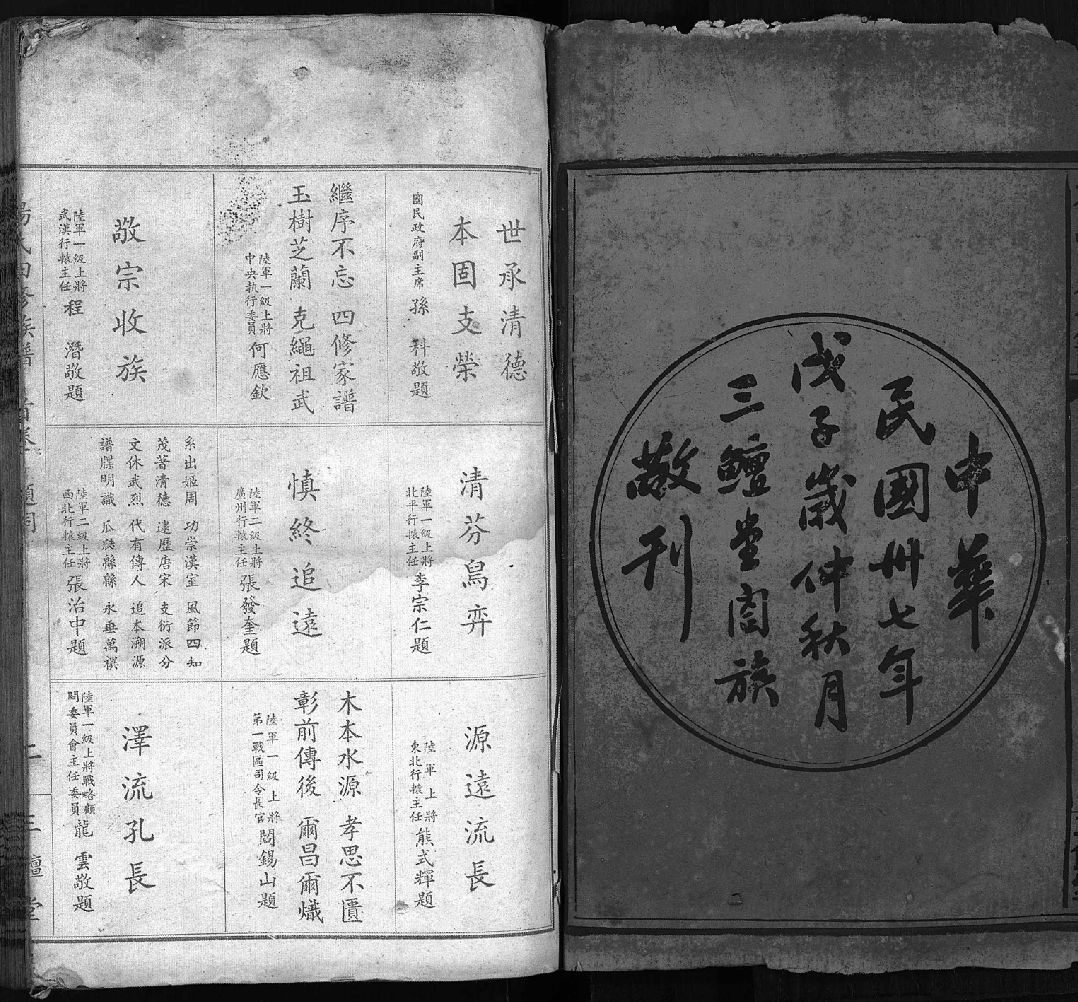 中華
民國卅七年
戊子歲仲秋月
三鱣堂闔族
敬刊
世承清德
本固支榮
國民政府副主席 孫 科敬題
繼序不忘 四修家譜
玉樹芝蘭 克繩祖武
陸軍一級上將
中央執行委員 何應欽
敬宗收族
陸軍一級上將
武漢行轅主任 程 潛敬題
清芬舄弈
陸軍一級上將
北平行轅主任 李宗仁題
慎終追遠
陸軍二級上將
廣州行轅主任 張發奎題
系出姬周 功崇漢室 風節四知
茂著清德 逮歷唐宋 支衍派分
文休武烈 代有傳人 追本溯源
譜牒明識 瓜瓞緜緜 永垂萬禩
陸軍二級上將
西北行轅主任 張治中題
源遠流長
陸軍上將
東北行轅主任 熊式輝題
木本水源 孝思不匱
彰前傳後 爾昌爾熾
陸軍一級上將
第一戰區司令長官 閻錫山題
澤流孔長
陸軍一級上將戰略顧
問委員會主任委員 龍 雲敬題
楊氏四修族譜
三鱣堂